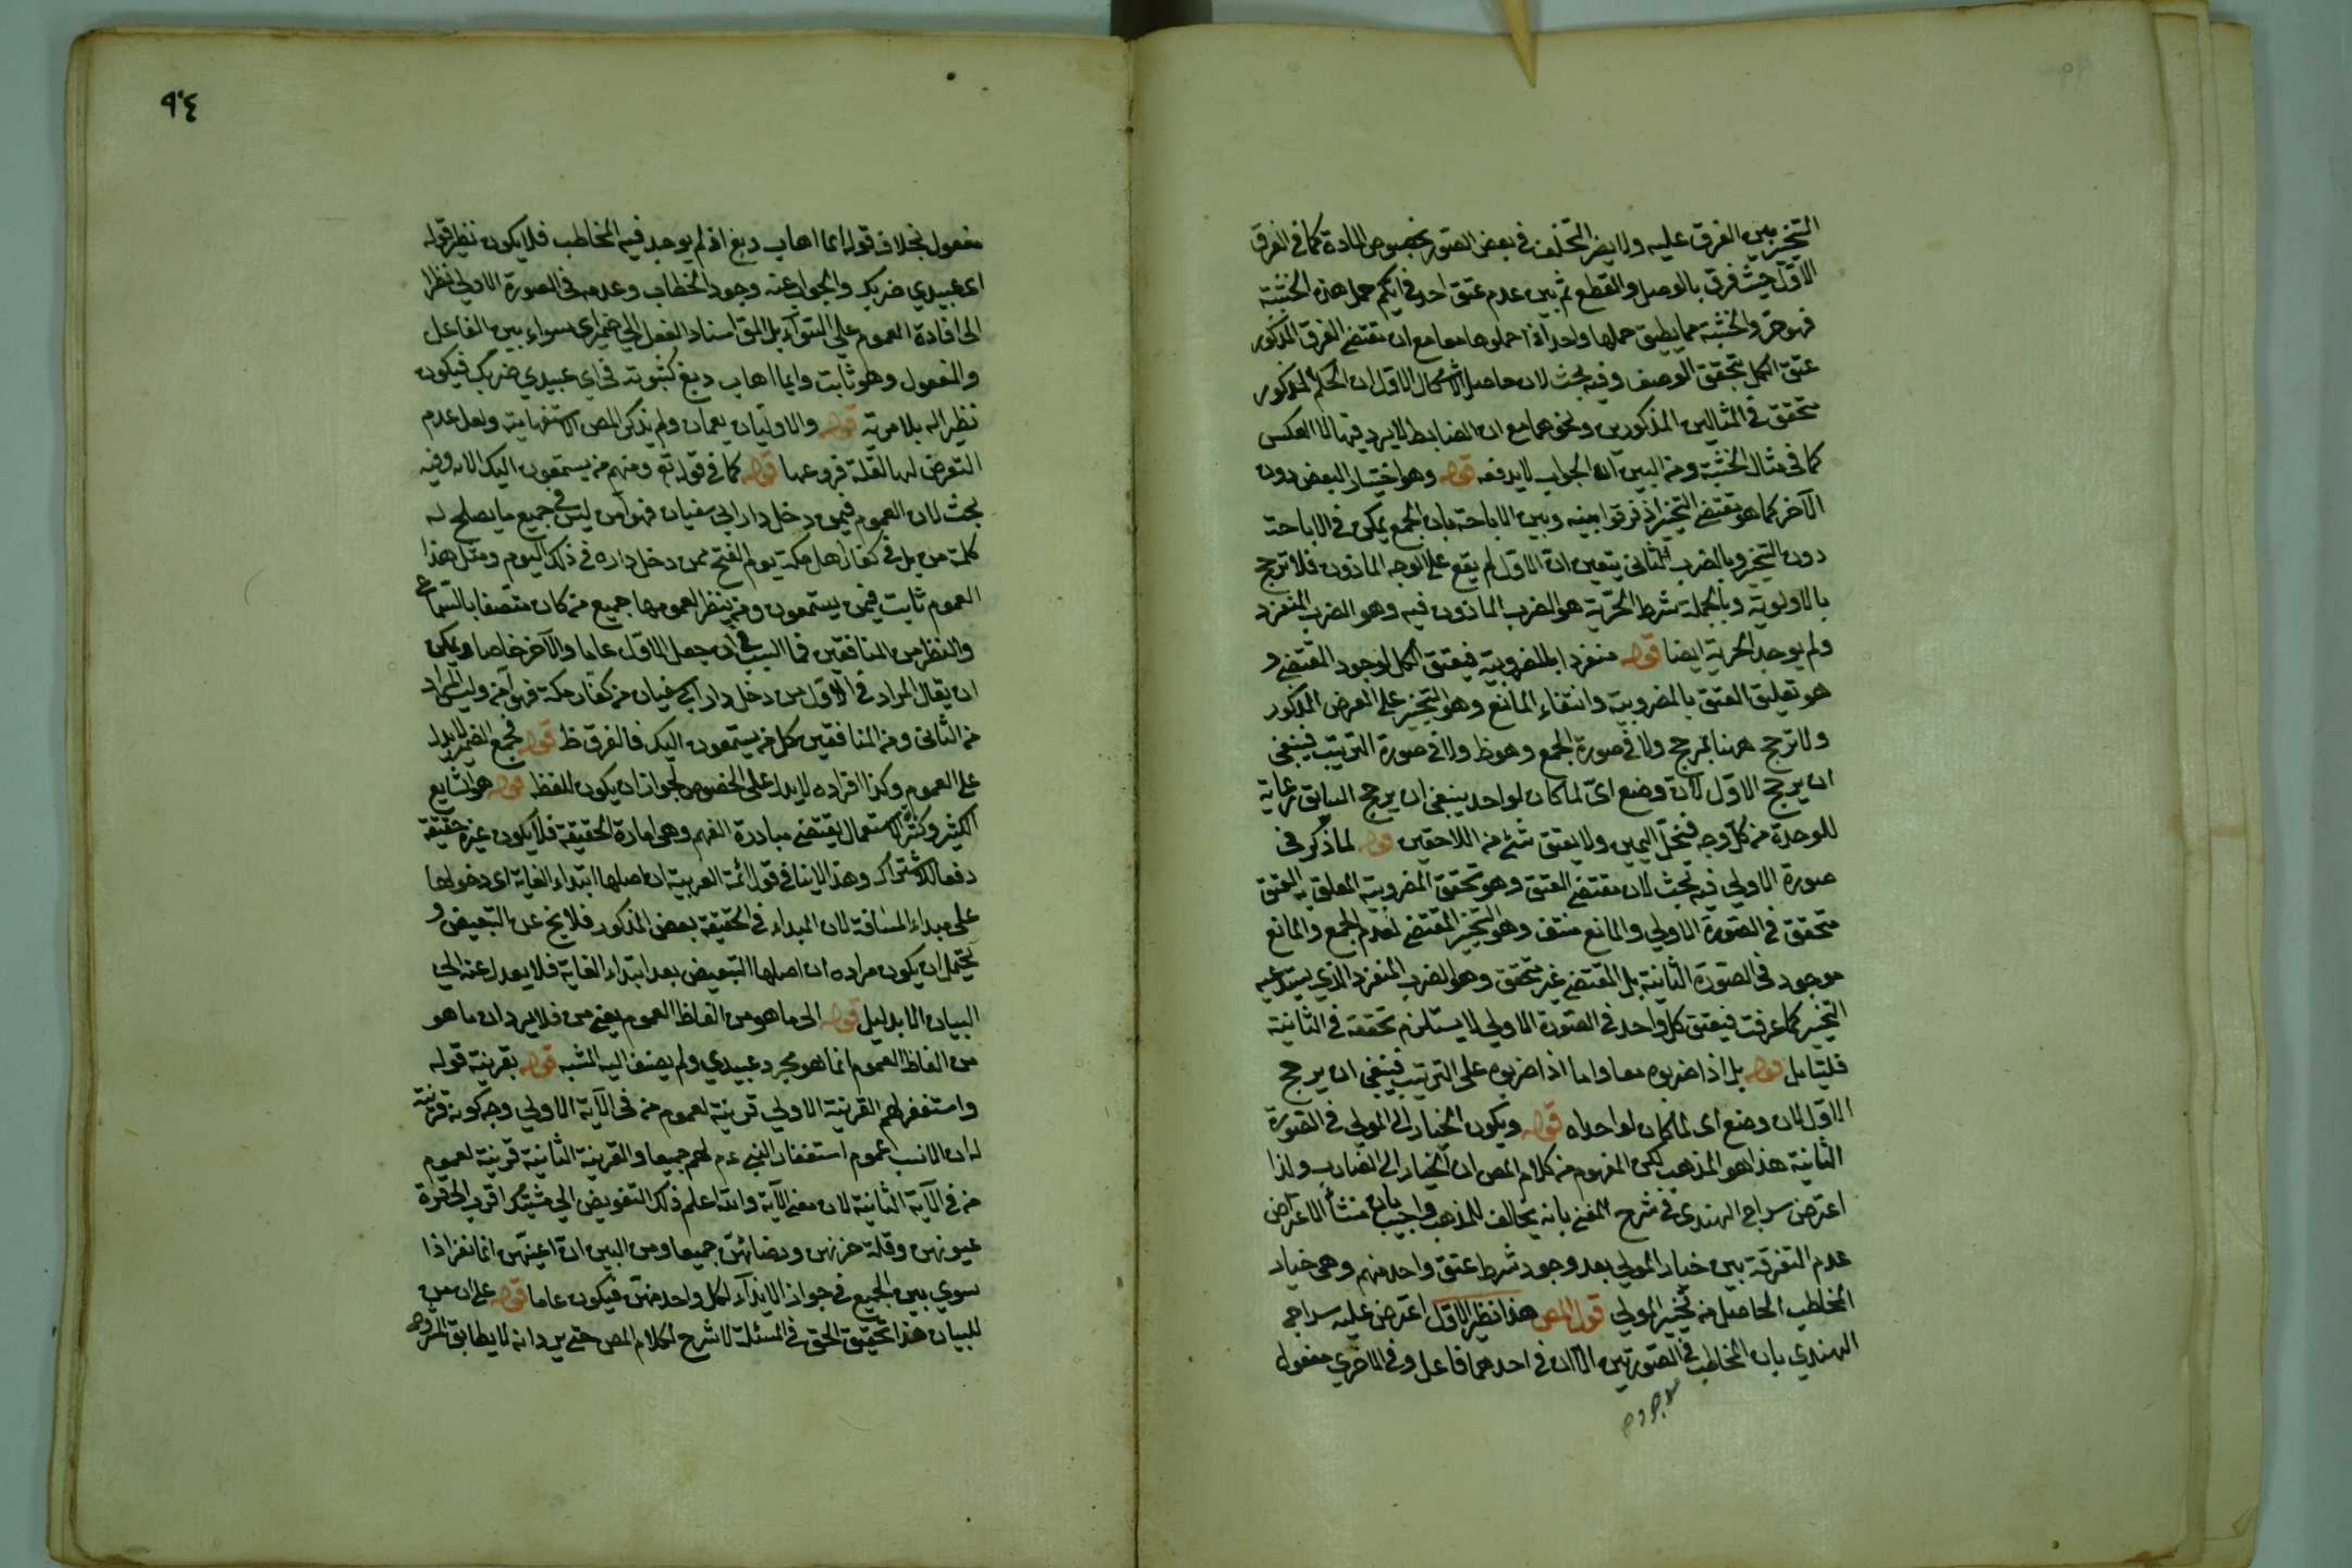 التخيير يبين الفرق عليه ولا يضر التخلف في بعض الصور بخصوص المادة كما في الفرق
الاول حيث فرق بالوصل والقطع ثم بين عدم عتق احد في ايكم حمل هذه الخشبة
فهو حر والخشبة مما يطيق حملها واحد اذا حملوها معا مع ان مقتضى الفرق المذكور
عتق الكل بتحقق الوصف وفيه بحث لان حاصل الاشكال الاول ان الحكم المذكور
متحقق في المثالين المذكورين ونحوهما مع ان الضابط لا يرد فيها الا العكس
كما في مثال الخشبة ومن البين ان الجواب لا يدفعه قوله وهو اختيار البعض دون
الآخر كما هو مقتضى التخيير اذ فرقوا بينه وبين الاباحة بان الجمع يمكن في الاباحة
دون التخيير وبالضرب الثاني يتعين ان الاول لم يقع على الوجه الماذون فلا ترجح
بالاولوية وبالجملة شرط الحرية هو الضرب الماذون فيه وهو الضرب المنفرد
ولم يوجد الحرية ايضا قوله منفردا بالمضروبية فيعتق الكل لوجود المقتضى و
هو تعليق العتق بالمضروبية وانتفاء المانع وهو التخيير على الفرض المذكور
ولا ترجح ههنا بمرجح ولا في صورة الجمع وهو ظ ولا في صورة الترتيب فينبغي
ان يرجح الاول لان وضع اي لما كان لواحد ينبغي ان يرجح السابق رعاية
للوحدة من كل وجه فينحل اليمين ولا يعتق شئ من اللاحقين قوله لما ذكر في
صورة الاولى فيه بحث لان مقتضى العتق وهو تحقق المضروبية المعلق به العتق
متحقق في الصورة الاولى والمانع منتف وهو التخيير المقتضى لعدم الجمع والمانع
موجود في الصورة الثانية بل المقتضى غير متحقق وهو الضرب المنفرد الذي يستدعيه
التخيير كما عرفت فيعتق كل واحد في الصورة الاولى لا يستلزم تحققه في الثانية
فليتامل قوله بل اذا ضربوه معا واما اذا ضربوه على الترتيب فينبغي ان يرجح
الاول لان وضع اي لما كان لواحد اه قوله ويكون الخيار الى المولى في الصورة
الثانية هذا هو المذهب لكن المفهوم من كلام المص ان الخيار الى الضارب ولذا
اعترض سراج الهندي في شرح المغني بانه يخالف للمذهب واجيب بان منشأ الاعتراض
عدم التفرقة بين خيار المولى بعد وجود شرط عتق واحد منهم وهي خيار
المخاطب الحاصل من تخيير المولى قول المص هذا نظير الاول اعترض عليه سراج
الهندي بان المخاطب في الصورتين الا ان في احدهما فاعل وفي الاخرى مفعول
٩٤
مفعول بخلاف قوله ايما اهاب دبغ اذ لم يوجد فيه المخاطب فلا يكون نظير قوله
اي عبيدي ضربك والجواب عنه وجود الخطاب وعدمه في الصورة الاولى نظرا
الى افادة العموم على السواء بل المق اسناد الفعل الى ضمير اي سواء بين الفاعل
والمفعول وهو ثابت وايما اهاب دبغ كثبوته في اي عبيدي ضربك فيكون
نظيرا له بلا مرية قوله والاوليان يعمان ولم يذكر المص الاستفهامية ولعل عدم
التعرض لها لقلة فروعها قوله كما في قوله تع ومنهم من يستمعون اليك الاه وفيه
بحث لان العموم فيمن دخل دار ابي سفيان فهو آمن ليس في جميع ما يصلح له
كلمة من بل في كفار اهل مكة يوم الفتح ممن دخل داره في ذلك اليوم ومثل هذا
العموم ثابت فيمن يستمعون ومن ينظر لعمومها جميع من كان متصفا بالسماع
والنظر من المنافقين فما السبب في ان جعل الاول عاما والآخر خاصا ويمكن
ان يقال المراد في الاول من دخل دار ابي سفيان من كفار مكة فهو آمن وليس المراد
من الثاني ومن المنافقين كل من يستمعون اليك فالفرق ظ قوله فجمع الضمير لا يدل
على العموم وكذا افراده لا يدل على الخصوص لجواز ان يكون للفظ قوله هو الشايع
الكثير وكثرة الاستعمال يقتضي مبادرة الفهم وهي امارة الحقيقة فلا يكون غيره حقيقة
دفعا للاشتراك وهذا لا ينافي قول ائمة العربية ان اصلها ابتداء الغاية اي دخولها
على مبداء المسافة لان المبداء في الحقيقة بعض المذكور فلا يخ عن التبعيض و
يحتمل ان يكون مراده ان اصلها التبعيض بعد ابتداء الغاية فلا يعدل عنه الى
البيان الا بدليل قوله الى ما هو من الفاظ العموم يعني من فلا يرد ان ما هو
من الفاظ العموم انما هو مجرد عبيدي ولم يضف اليه المشبه قوله بقرينة قوله
واستغفر لهم القرينة الاولى قرينة لعموم من في الآية الاولى وجه كونه قرينة
له ان الانسب عموم استغفار النبي عم لهم جميعا والقرينة الثانية قرينة لعموم
من في الآية الثانية لان معنى الآية والله اعلم ذلك التفويض الى مشيتك اقرب الى قرة
عيونهن وقلة حزنهن ورضائهن جميعا ومن البين ان اعينهن انما تقر اذا
سوي بين الجميع في جواز الايذاء لكل واحد منهن فيكون عاما قوله على ان من
للبيان هذا تحقيق الحق في المسئلة لا شرح لكلام المص حتى يرد انه لا يطابق المشروح